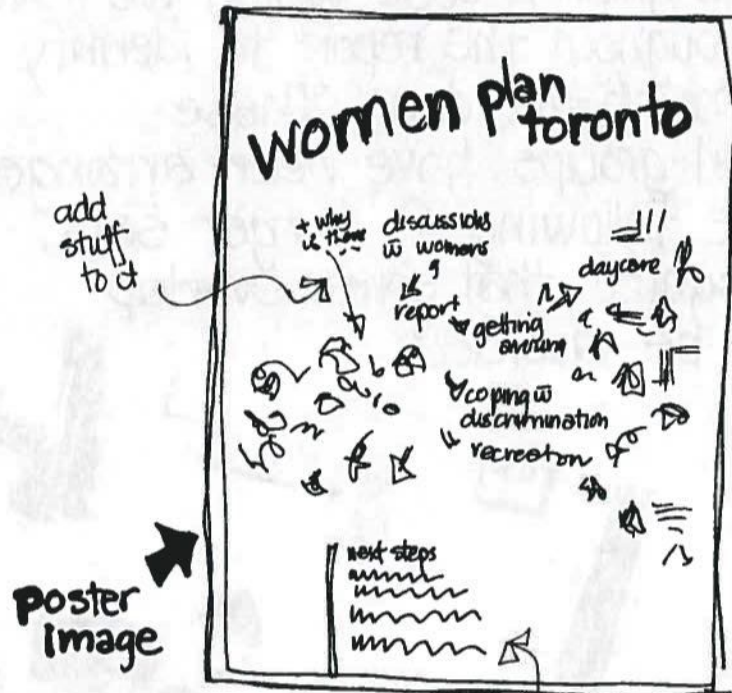 women plan
toronto
add
stuff
to it
+ why
is there
discussions
w̄ womens
report
daycare
getting
around
coping w̄
discrimination
recreation
next steps
poster
image